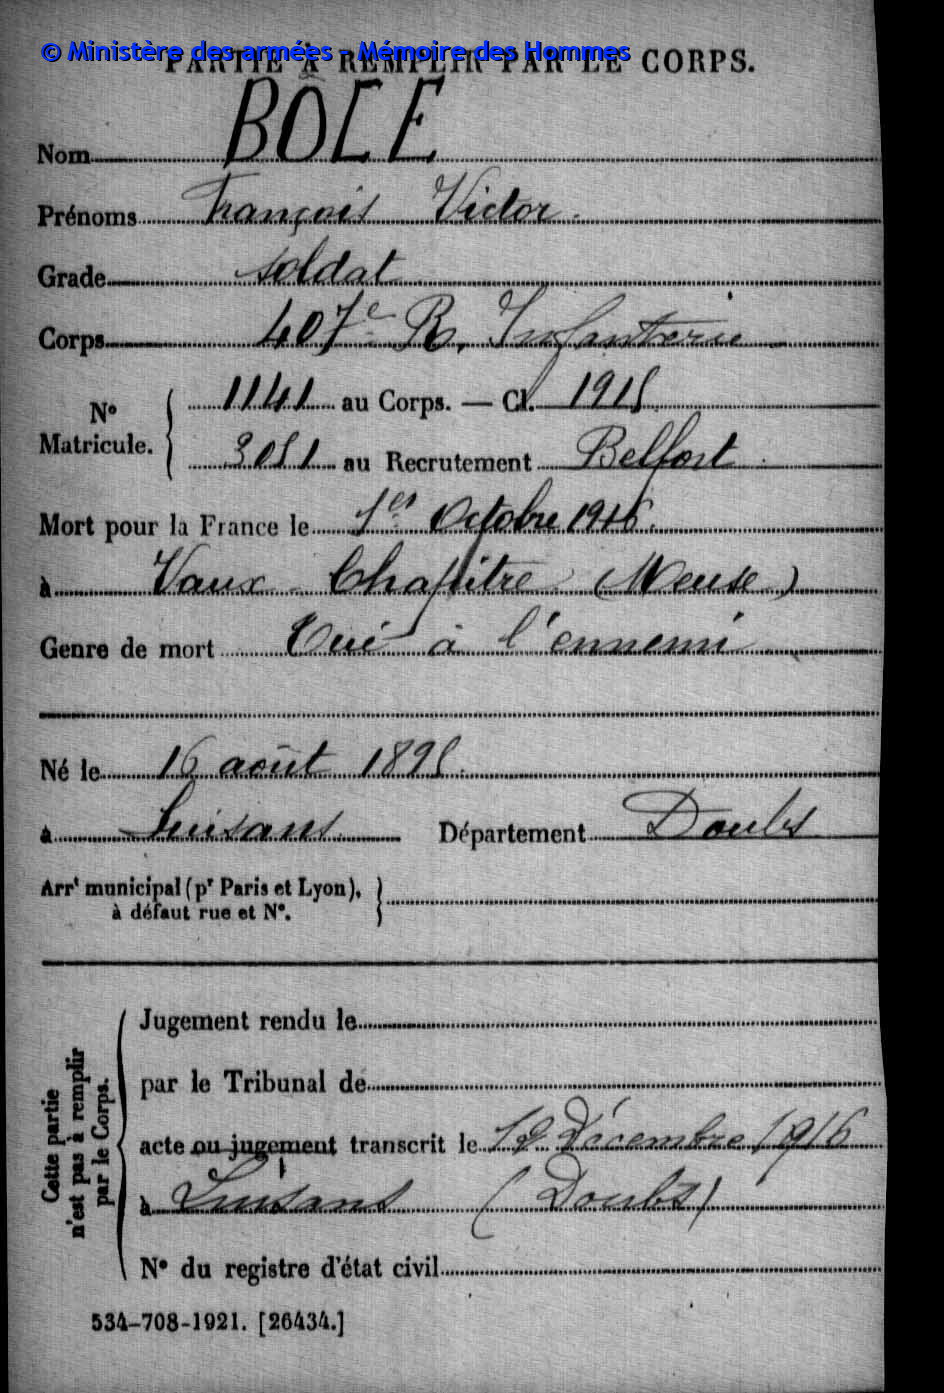 © Ministère des armées - Mémoire des Hommes
PARTIE À REMPLIR PAR LE CORPS.
Nom BÔLE
Prénoms François Victor
Grade soldat
Corps 407e R. Infanterie
N° Matricule. 1141 au Corps. — Cl. 1915
3051 au Recrutement Belfort
Mort pour la France le 1er Octobre 1916.
à Vaux - Chapitre (Meuse)
Genre de mort Tué à l'ennemi
Né le 16 août 1895.
à Luisans Département Doubs
Arrt municipal (pr Paris et Lyon),
à défaut rue et N°.
Cette partie n'est pas à remplir par le Corps.
Jugement rendu le
par le Tribunal de
acte ou jugement transcrit le 12 Décembre 1916
à Luisans (Doubs)
N° du registre d'état civil
534-708-1921. [26434.]